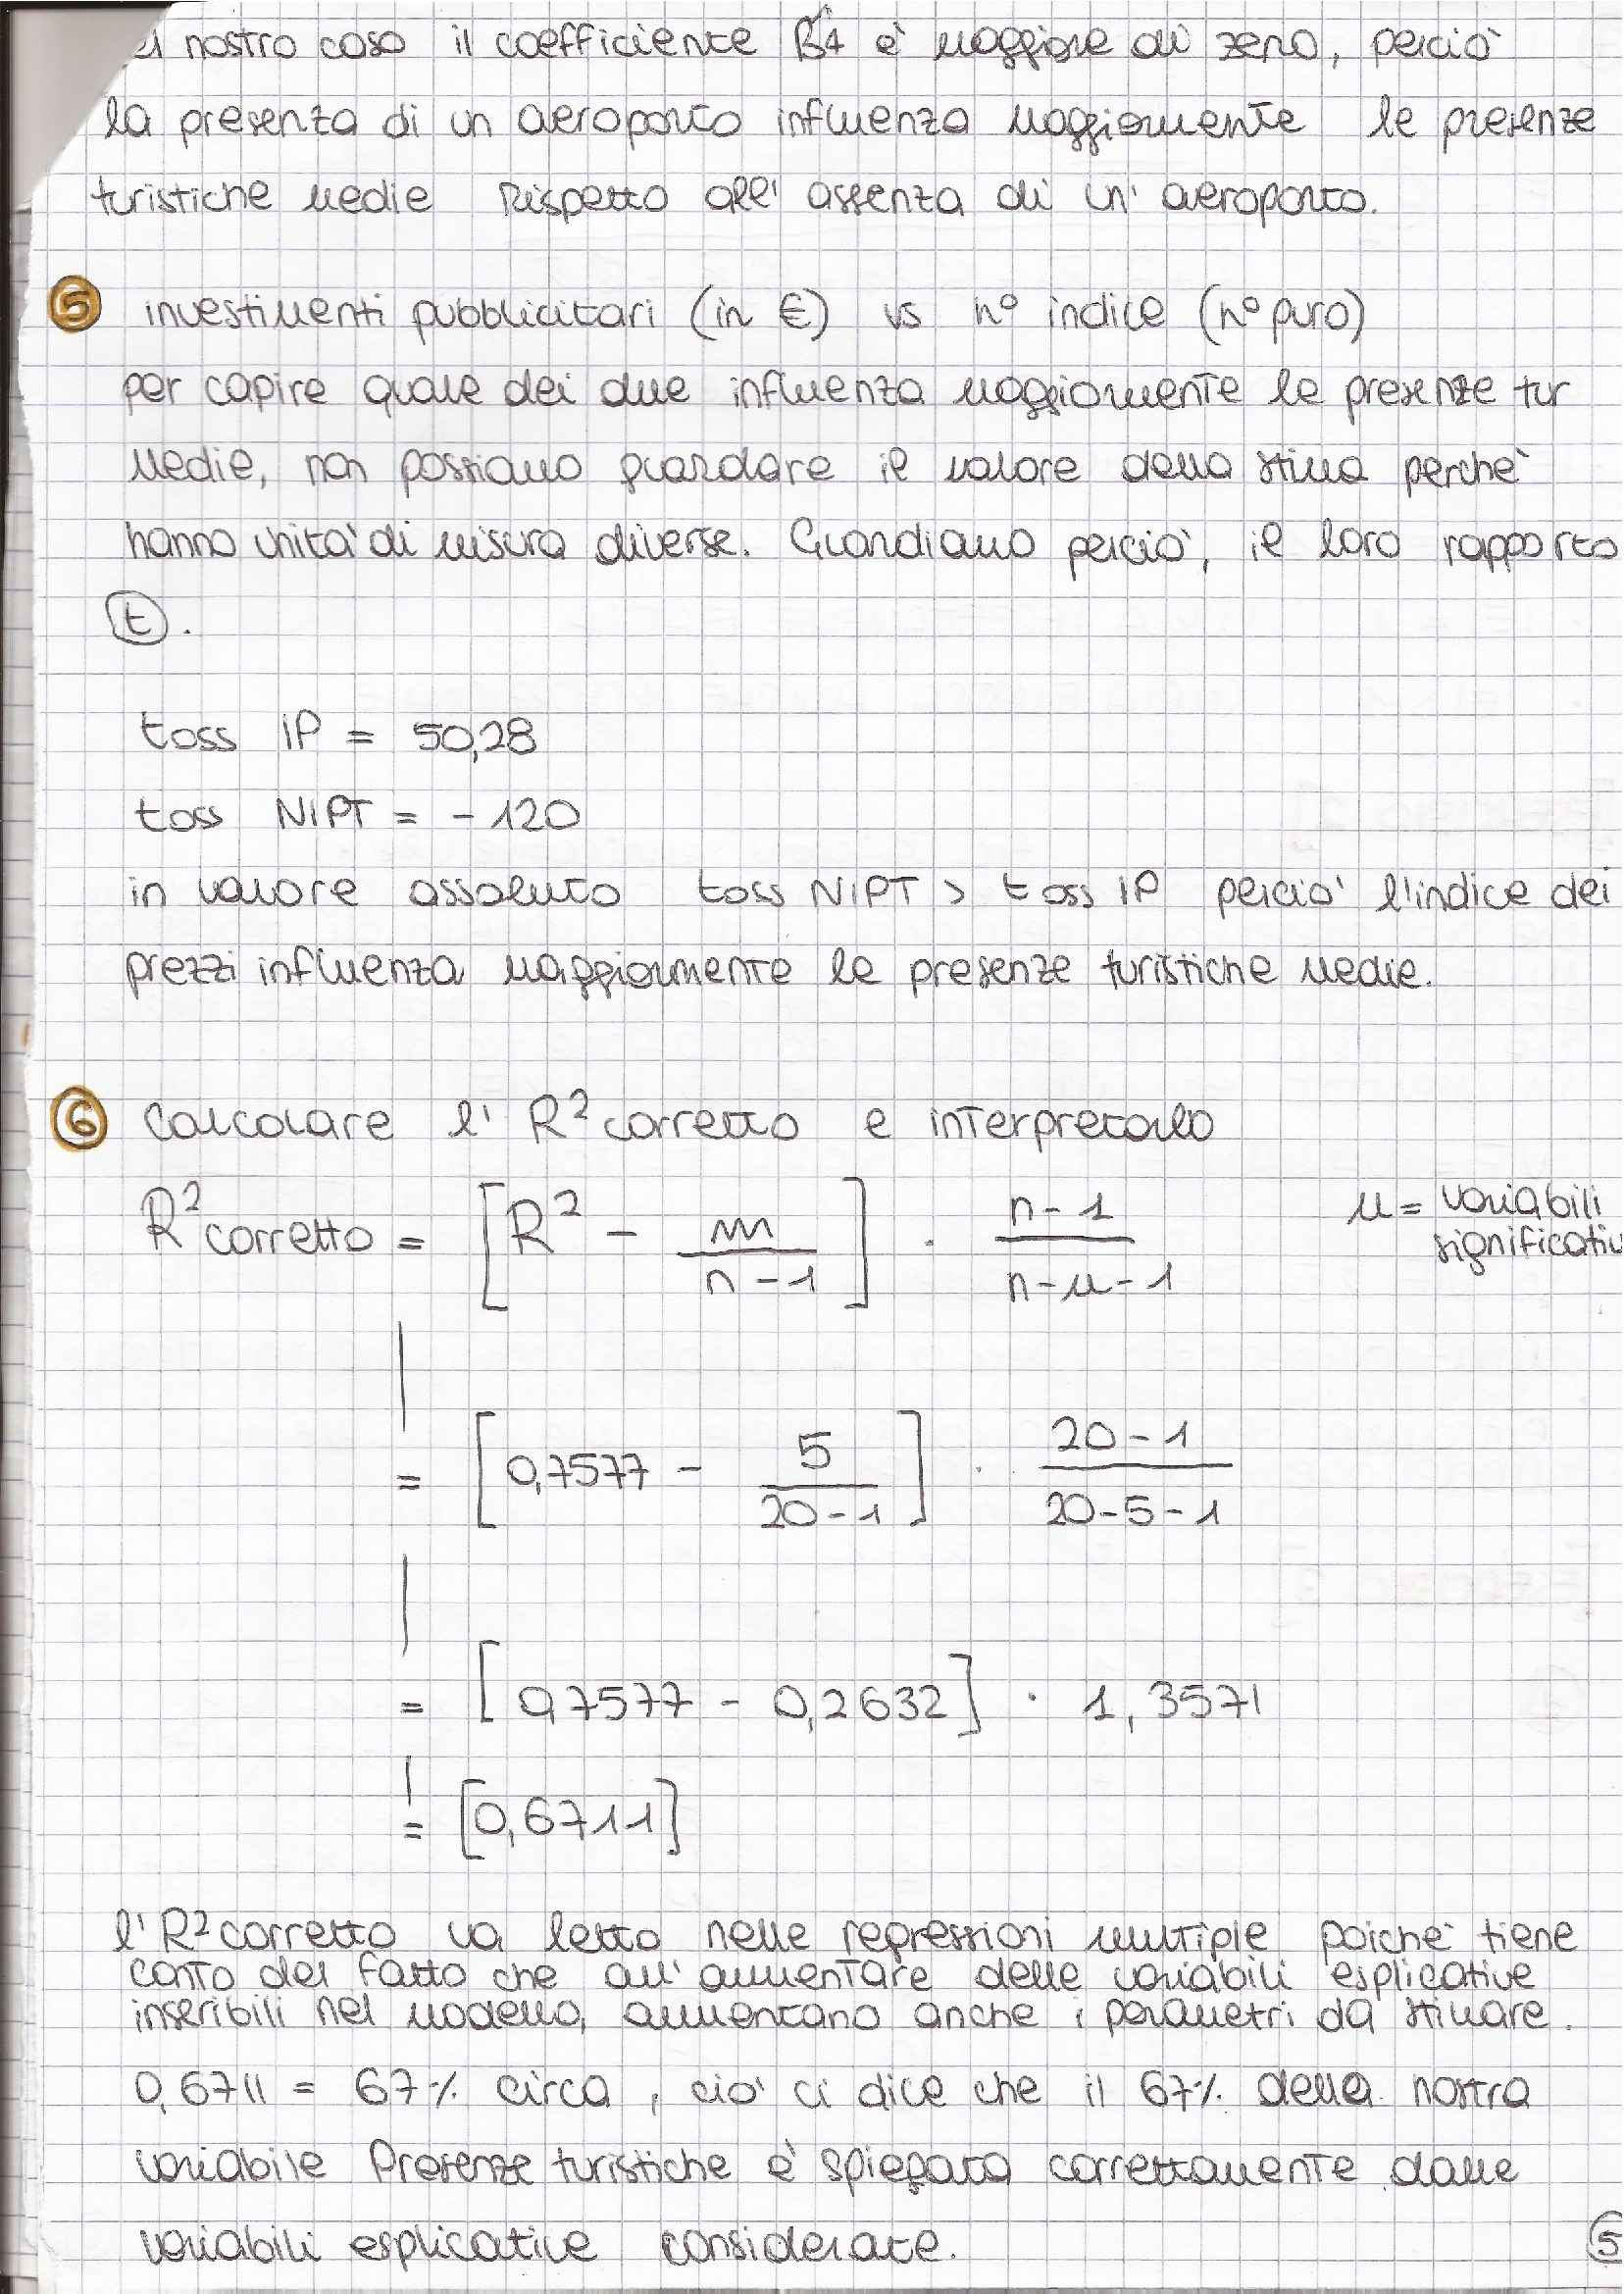 nostro caso il coefficiente B4 è maggiore di zero, perciò
la presenza di un aeroporto influenza maggiormente le presenze
turistiche medie rispetto all' assenza di un' aeroporto.
5 investimenti pubblicitari (in €) vs n° indice (n° puro)
per capire quale dei due influenza maggiormente le presenze tur
medie, non possiamo guardare il valore della stima perchè
hanno unità di misura diverse. Guardiamo perciò, il loro rapporto
t.
toss IP = 50,28
toss NIPT = - 120
in valore assoluto toss NIPT > toss IP perciò l'indice dei
prezzi influenza maggiormente le presenze turistiche medie.
6 Calcolare l' R² corretto e interpretarlo
R² corretto = [R² - m / n - 1] · n - 1 / n - m - 1 m = variabili
significativ
= [0,7577 - 5 / 20 - 1] · 20 - 1 / 20 - 5 - 1
= [0,7577 - 0,2632] · 1,3571
= [0,6711]
l' R² corretto va letto nelle regressioni multiple poichè tiene
conto del fatto che all' aumentare delle variabili esplicative
inseribili nel modello, aumentano anche i parametri da stimare.
0,6711 = 67% circa, ciò ci dice che il 67% della nostra
variabile Presenze turistiche è spiegata correttamente dalle
variabili esplicative considerate.
5